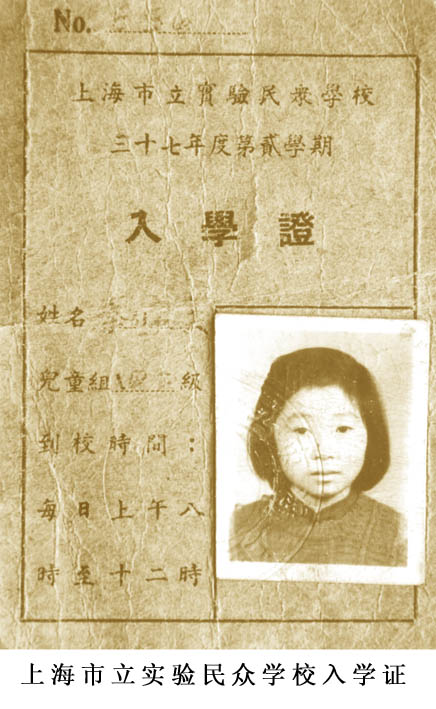 No.
上海市立實驗民衆學校
三十七年度第貳學期
入學證
姓名
兒童組 級
到校時間：
每日上午八
時至十二時
上海市立实验民众学校入学证